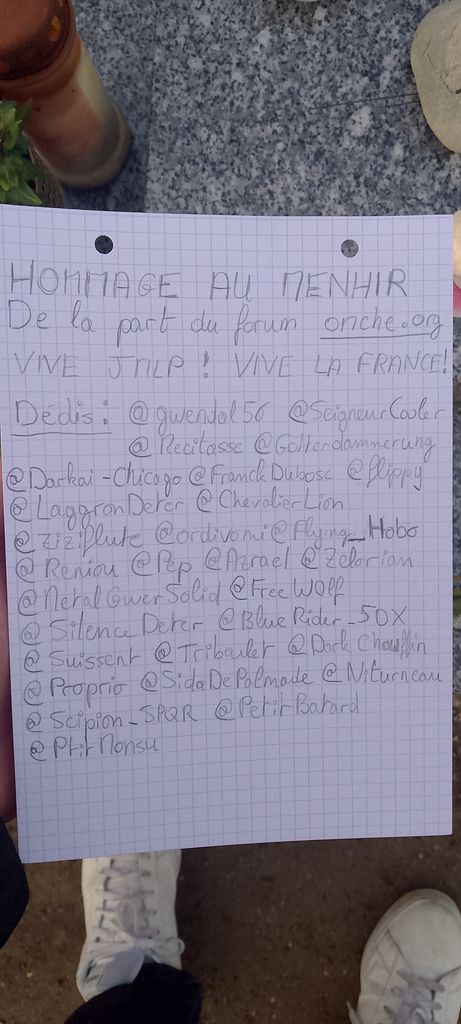 HOMMAGE AU MENHIR
De la part du forum onche.org
VIVE JMLP ! VIVE LA FRANCE!
Dédis : @gwendal56 @SeigneurCooler
@Recitasse @Gotterdammerung
@Darkai-Chicago @FranckDubosc @flippy
@LaggronDeter @ChevalierLion
@ziziflute @ordivomi @Flying_Hobo
@Reniou @Pep @Azrael @Zelorian
@MetalGwerSolid @FreeWolf
@SilenceDeter @BlueRider_50X
@Suissent @Tribouler @DarkChauffin
@Proprio @SidaDePalmade @Niturneau
@Scipion_SPQR @PetitBatard
@PtitMonsu